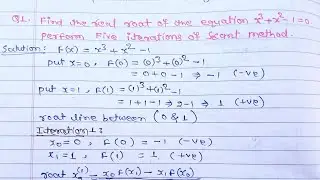 Q1. Find the real root of the equation x³+x²-1=0.
perform Five iterations of Secant method.
Solution: F(x) = x³ + x² - 1
put x=0, F(0) = (0)³ + (0)² - 1
= 0+0-1 ⇒ -1 (-ve)
put x=1, F(1) = (1)³ + (1)² - 1
= 1+1-1 ⇒ 2-1 ⇒ 1 (+ve)
root line between (0 & 1)
Iteration 1:
x₀ = 0, F(0) = -1 (-ve)
x₁ = 1, F(1) = 1 (+ve)
root x₂⁽¹⁾ = x₀ F(x₁) - x₁ F(x₀)